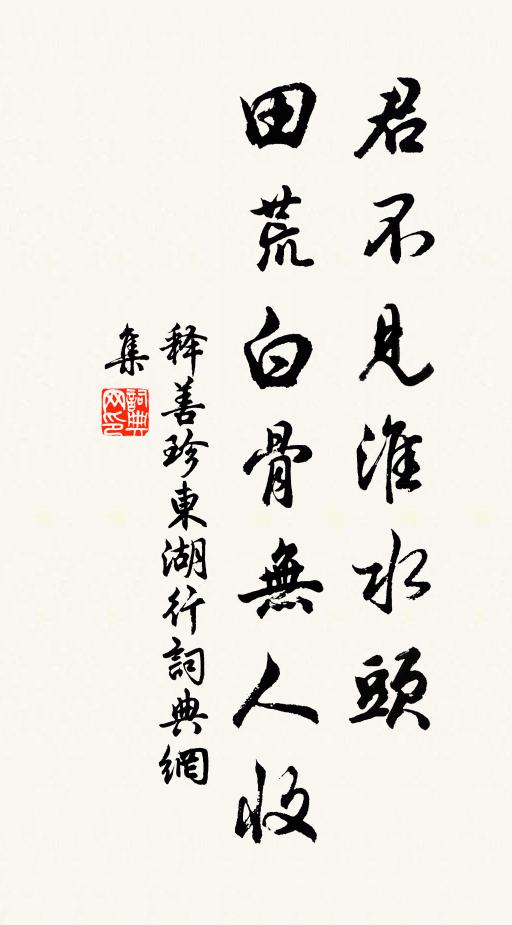 君不見淮水頭
田荒白骨無人收
释善珍東湖行詞典網
集
詞典
网印